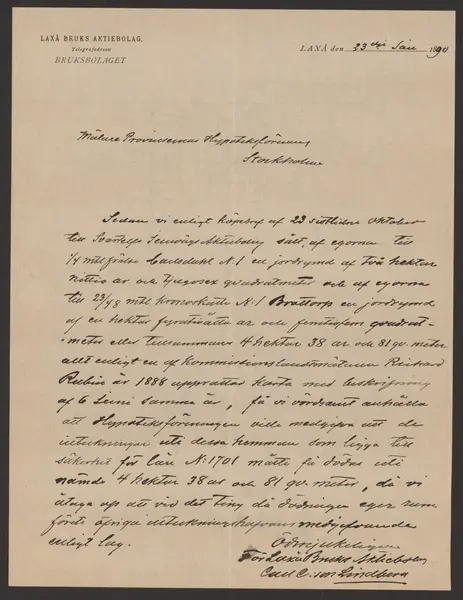 LAXÅ BRUKS AKTIEBOLAG.
Telegrafadress
BRUKSBOLAGET
LAXÅ den 23 dje Jan 1890
Mälare Provinsernas Hypoteksförening
Stockholm
Sedan vi enligt köpebref af 23 sistlidne Oktober
till Svartelfs Jernvägs Aktiebolag sålt, af egorna till
1/4 mtl frälse Carlsdahl N:1 en jordrymd af två hektar
nittio ar och tjugosex quadratmeter och af egorna
till 23/48 mtl Kronoskatte N:1 Brattorp en jordrymd
af en hektar fyratioåtta ar och femtiofem quadrat-
meter eller tillsammans 4 hektar 38 ar och 81 qv. meter
allt enligt en af Kommissionslandtmätaren Richard
Rubin år 1888 upprättad karta med beskrifning
af 6 Juni samma år, få vi vördsamt anhålla
att Hypoteksföreningen ville medgifva att de
inteckningar uti dessa hemman som ligga till
säkerhet för lån N:1701 måtte få dödas uti
nämde 4 hektar 38 ar och 81 qv. meter, då vi
åtaga oss att vid det ting då dödningen eger rum
förete öfriga inteckningshafvares medgifvande
enligt lag.
Ödmjukeligen
För Laxå Bruks Aktiebolag
Carl C:son Lindberg